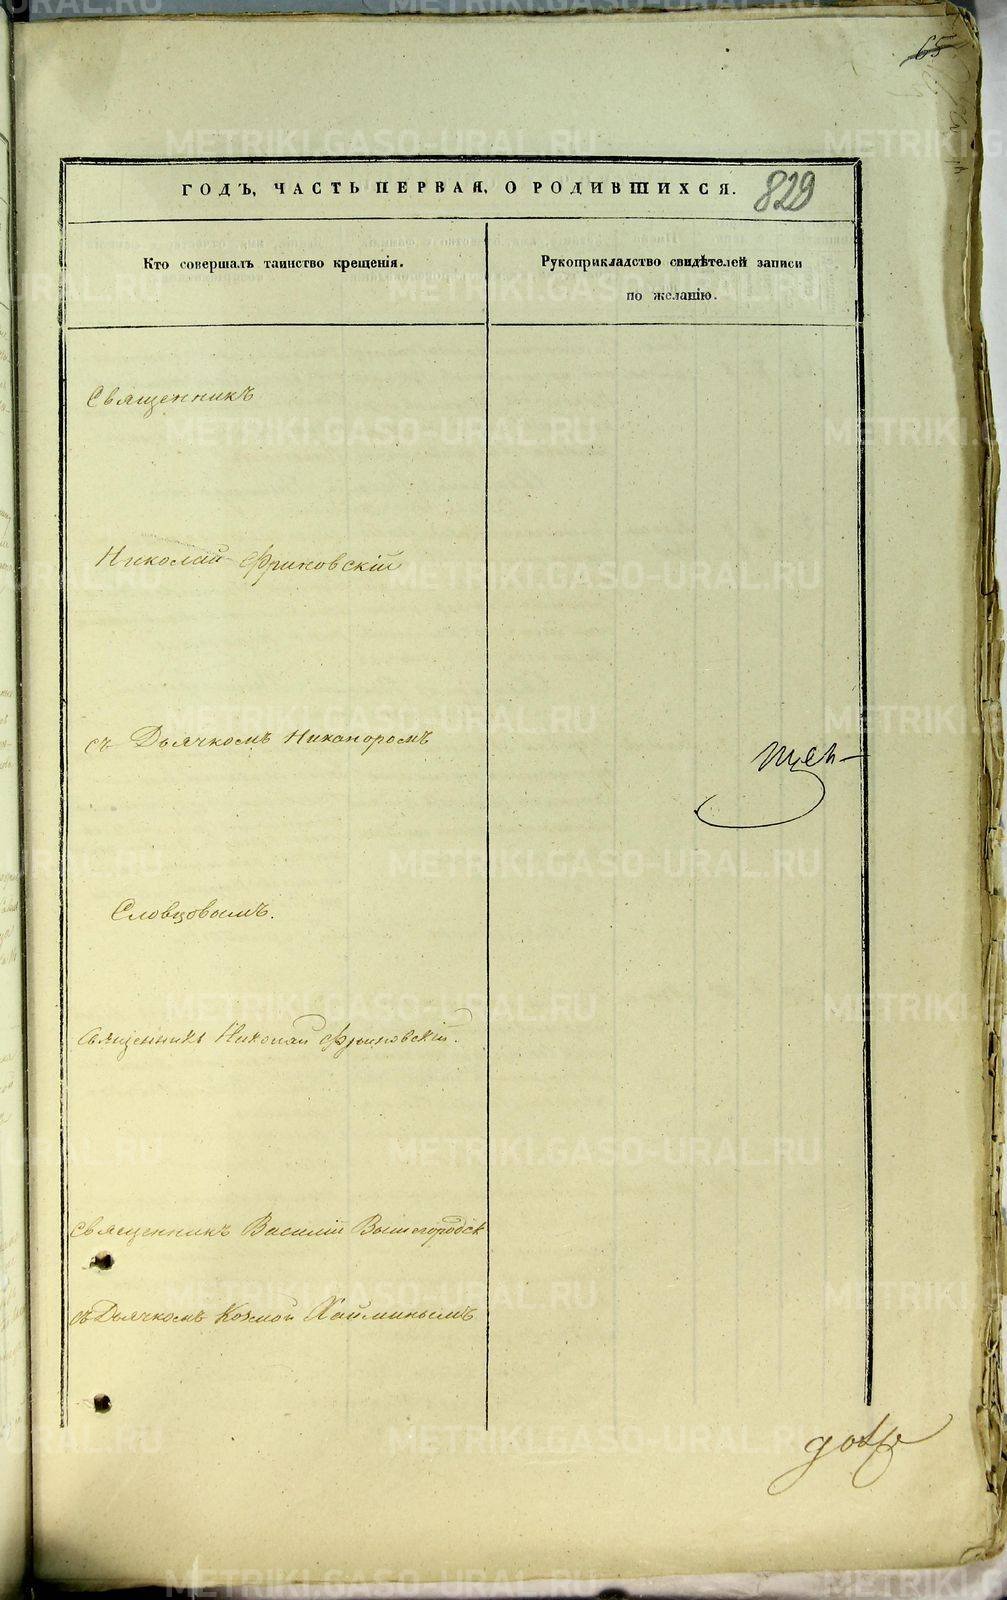 65
ГОДЪ, ЧАСТЬ ПЕРВАЯ, О РОДИВШИХСЯ.
829
Кто совершалъ таинство крещенія.
Рукоприкладство свидѣтелей записи
по желанію.
Священникъ
Николай Фриновскій
съ Дьячкомъ Никаноромъ
Словцовымъ.
Священникъ Николай Фриновскій.
Священникъ Василій Вышегородск
съ Дьячкомъ Козмой Хайминымъ
METRIKI.GASO-URAL.RU